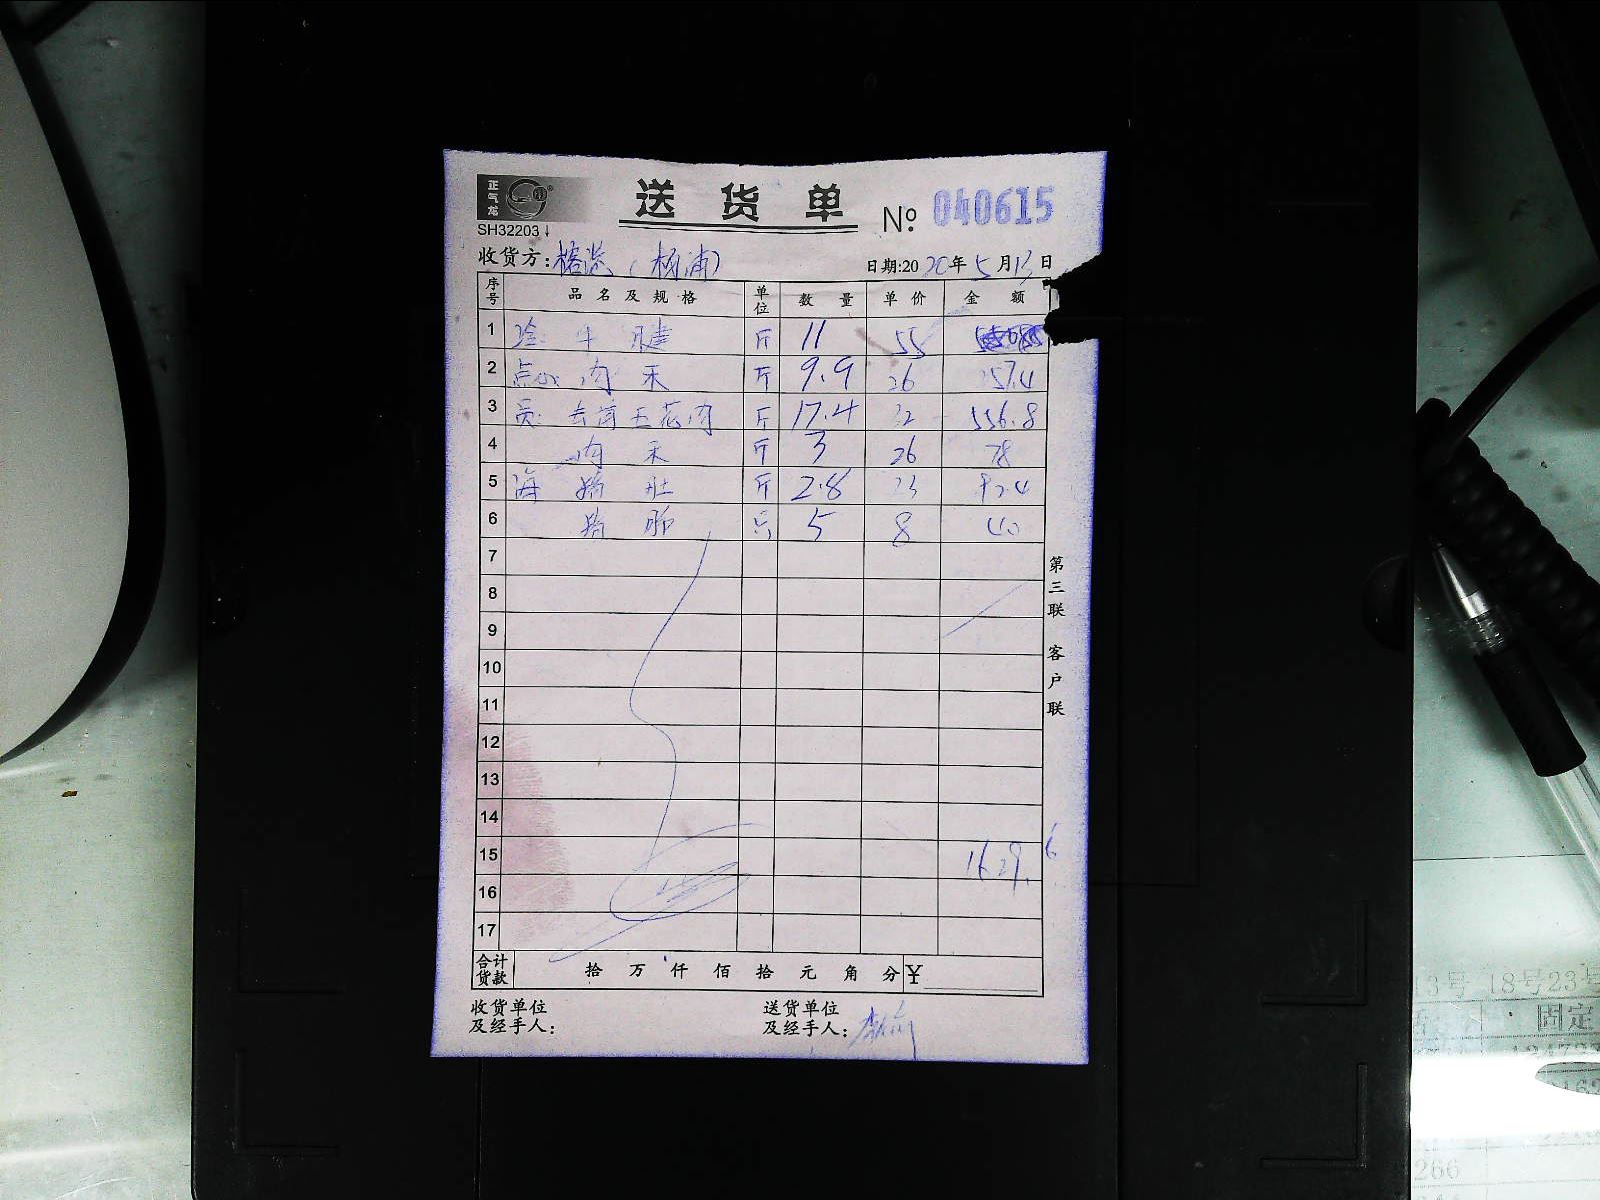 正气龙
送货单
№ 040615
SH32203
收货方: (杨浦)
日期:2020年5月13日
序号 品名及规格 单位 数量 单价 金额
1 牛腱 斤 11 55
2 点心 肉末 斤 9.9 26 257.4
3 员 去前五花肉 斤 17.4 32 556.8
4 肉末 斤 3 26 78
5 海 猪肚 斤 2.8 33 92.4
6 猪脚 只 5 8 40
7
8
9
10
11
12
13
14
15 1629.6
16
17
第三联 客户联
合计货款 拾 万 仟 佰 拾 元 角 分 ¥
收货单位 送货单位
及经手人: 及经手人:
13号 18号23号
固定
266